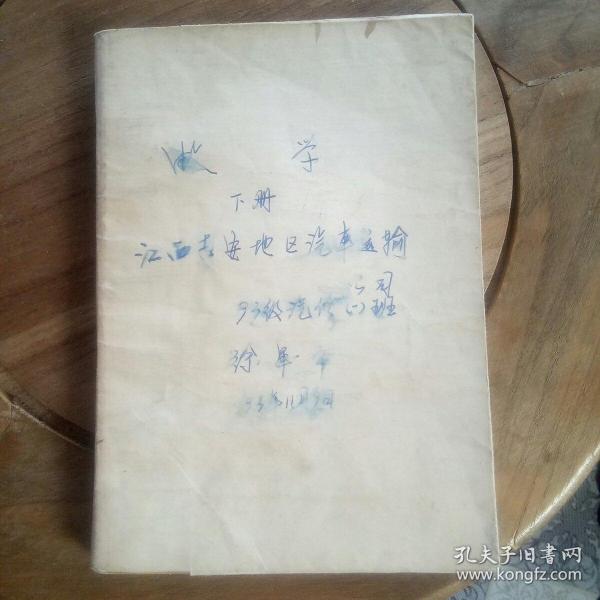 数 学
下册
江西吉安地区汽车运输
公司
93级汽修(1)班
徐军
93年11月9日
孔夫子旧书网
www.kongfz.com